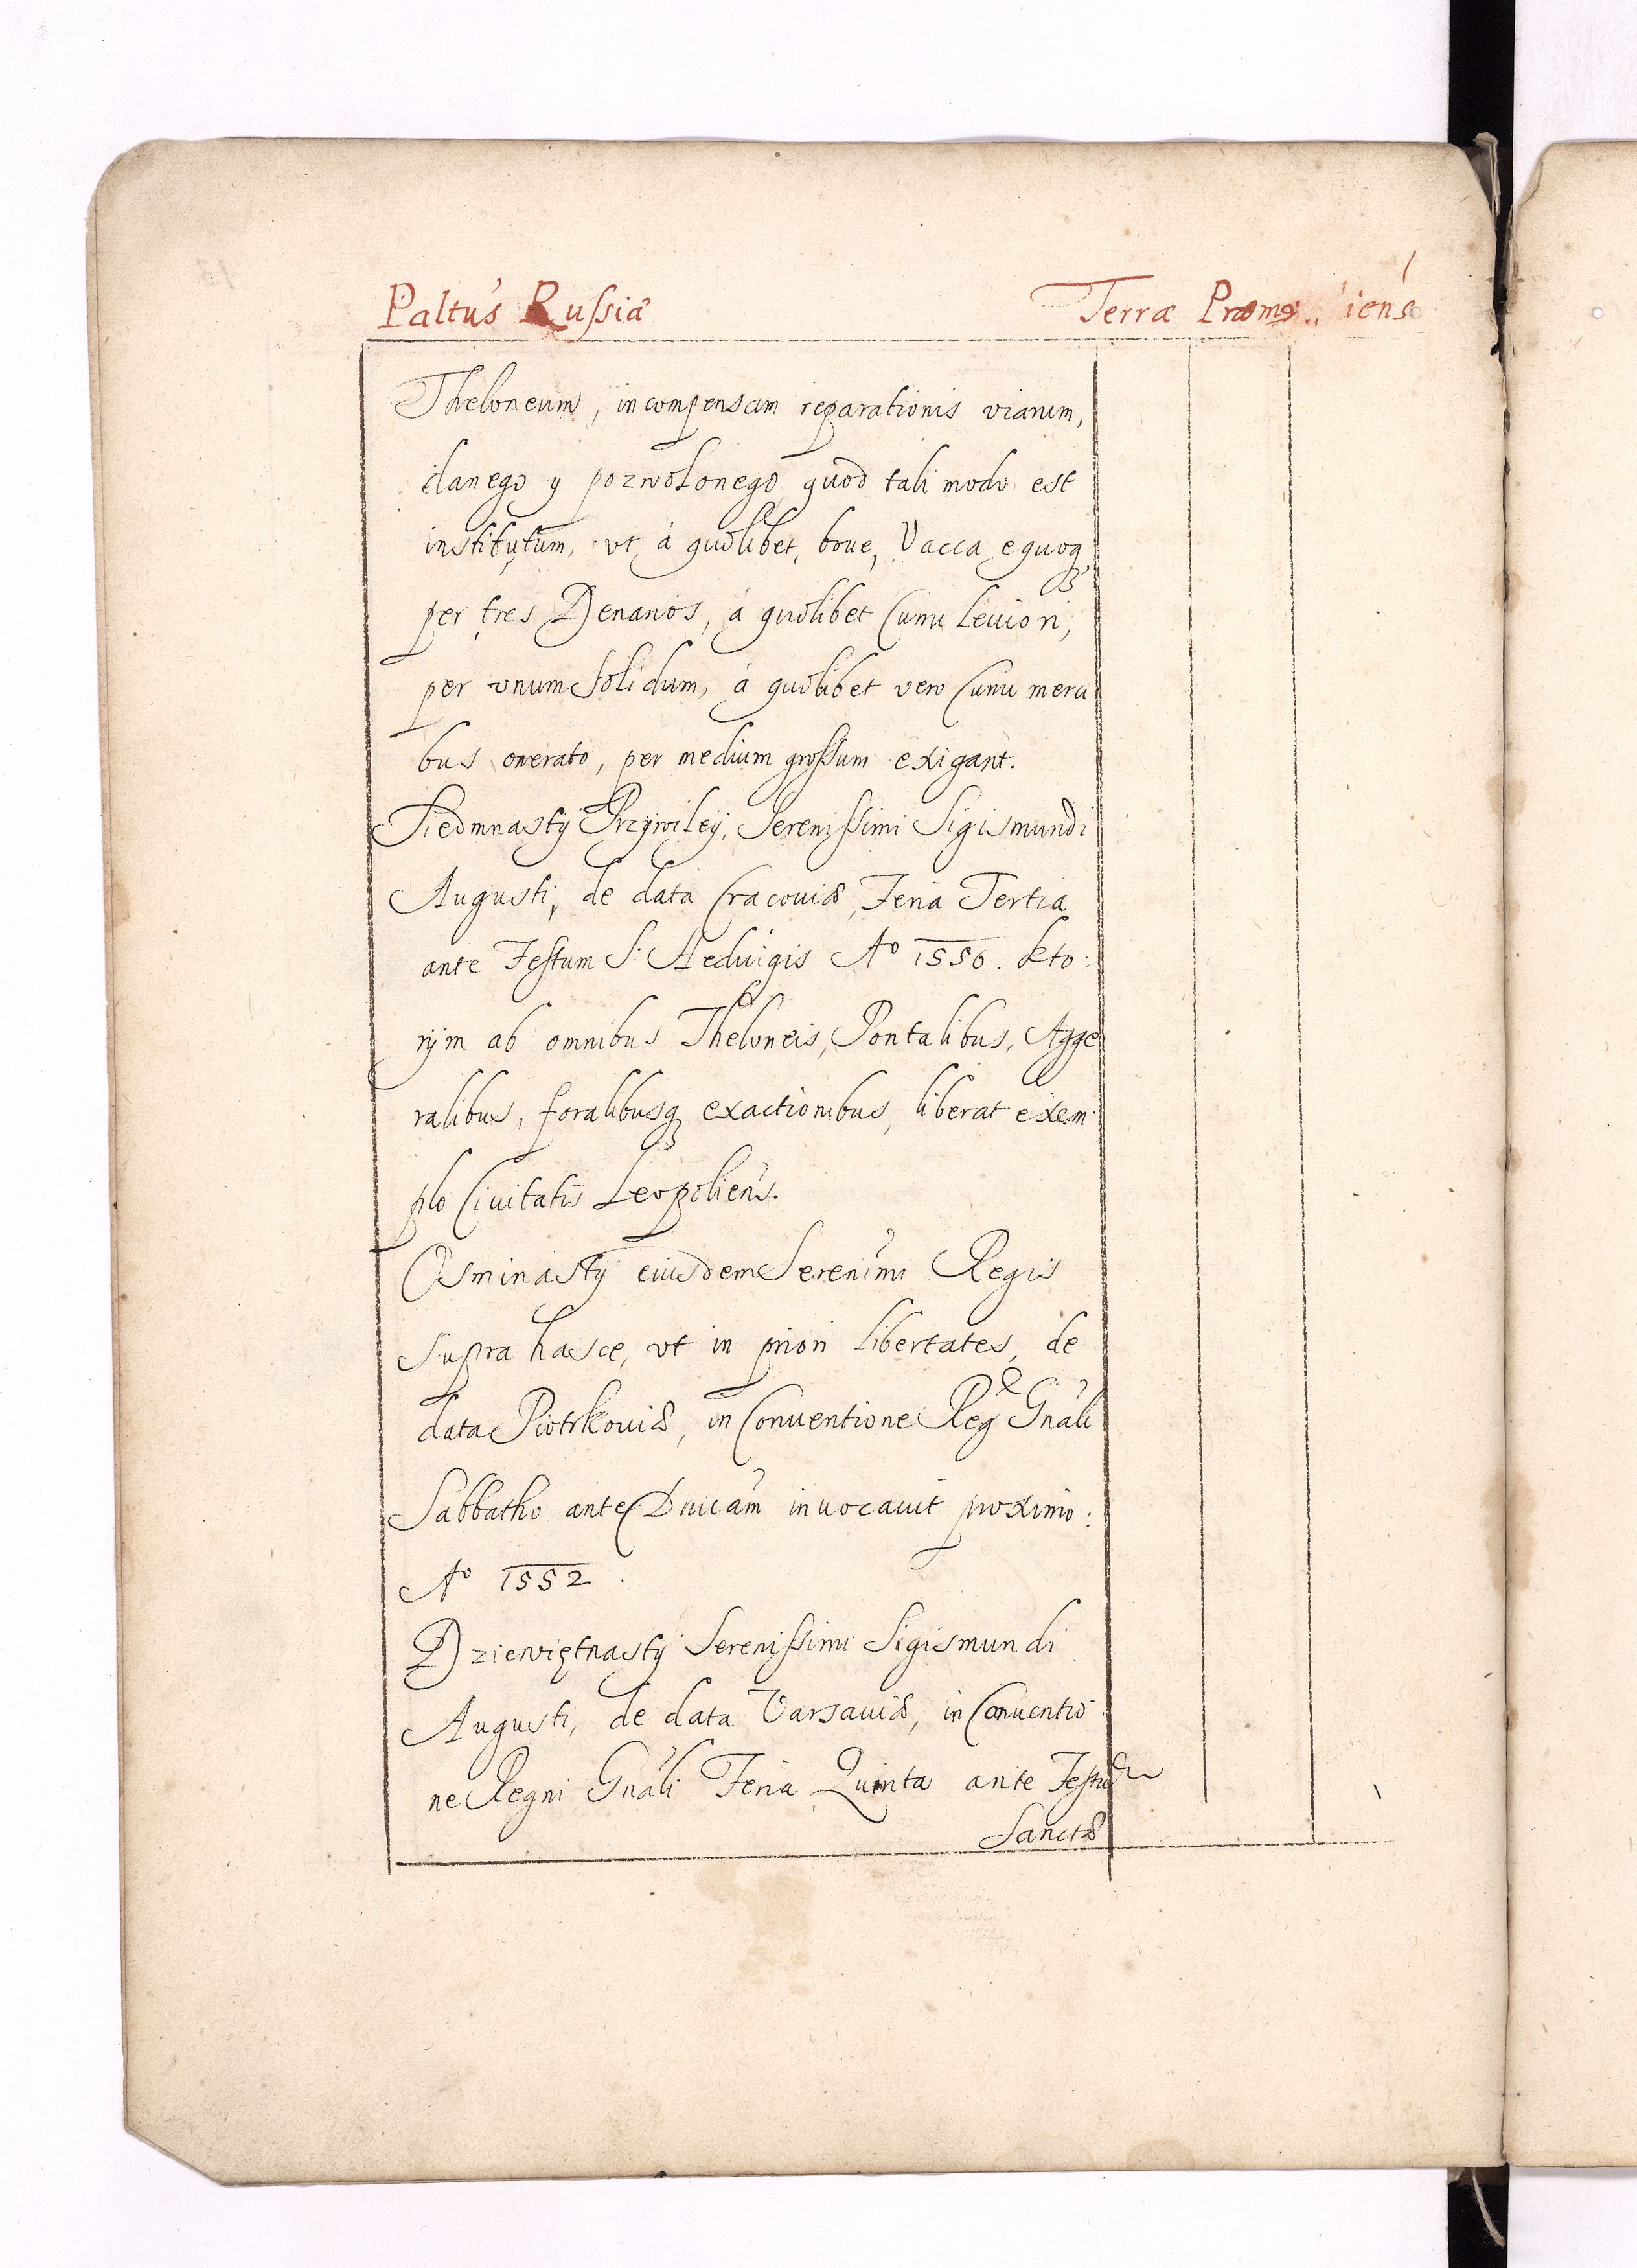 Paltus Russiæ
Terræ Præm iens
Theloneum, in compensam reparationis viarum,
danego y pozwolonego quod tali modo est
institutum, vt á quolibet, boue, Vacca equoq
per tres Denarios, á quolibet Curru leuiori,
per vnum solidum, á quolibet vero Curru merci
bus onerato, per medium grossum exigant.
Siedmnasty Przywiley, Serenissimi Sigismundi
Augusti, de data Cracouiæ, Feria Tertia
ante Festum S: Heduigis Aº 1556. kto:
rym ab omnibus Theloneis, Pontalibus, Agge
ralibus, foralibusq exactionibus, liberat exem
plo Ciuitatis Leopoliens.
Osminasty eiusdem Serenimi Regis
supra hasce, vt in priori libertates, de
data Piotrkouiæ, in Conuentione Reg Gnali
Sabbatho ante Dnicam inuocauit proximo:
Aº 1552.
Dziewiętnasty Serenissimi Sigismundi
Augusti, de data Varsauiæ, in Conuentio
ne Regni Gnali Feria Quinta ante Festum
Sanctæ